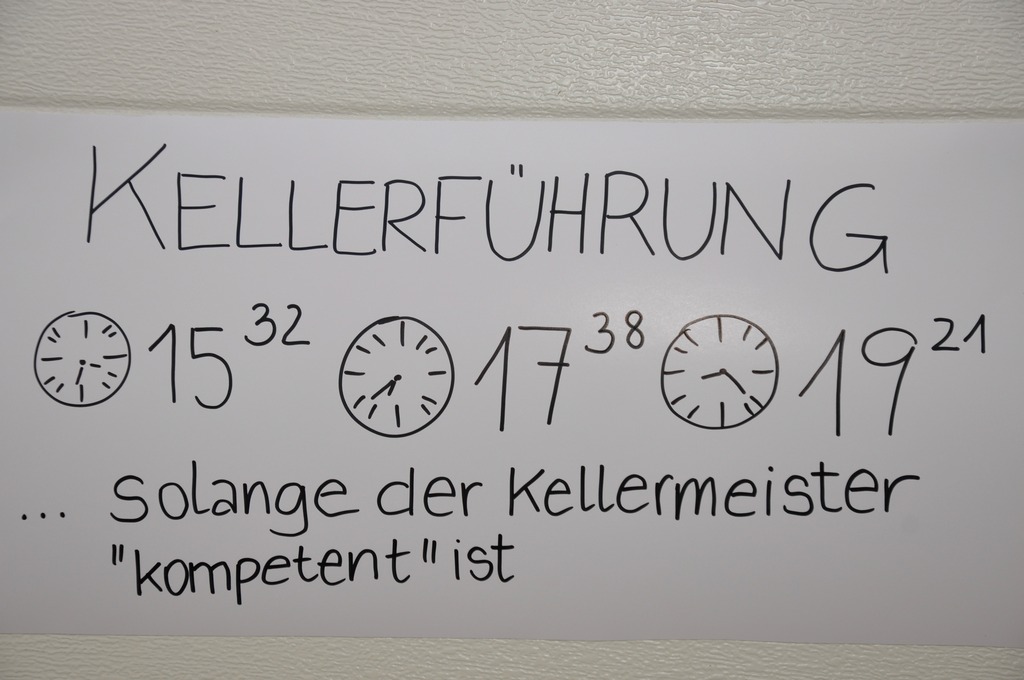 KELLERFÜHRUNG
15 32 17 38 19 21
... solange der Kellermeister
"kompetent" ist